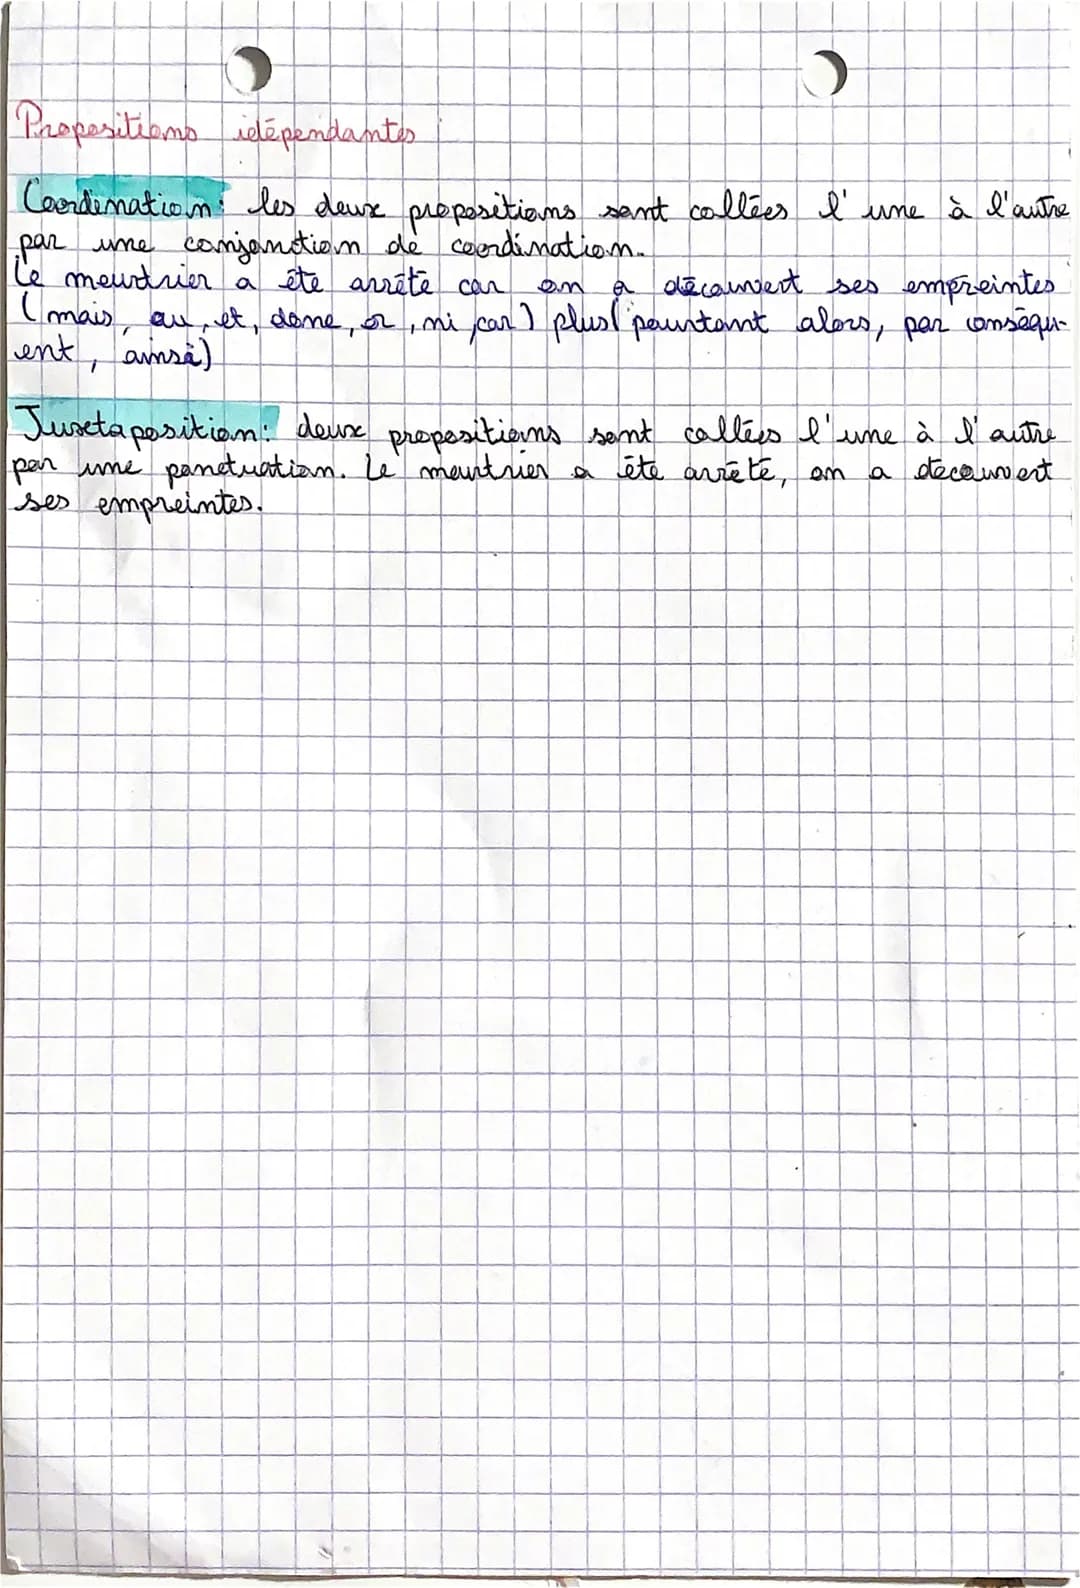 Propositions idépendantes
Coordination: les deux propositions sont collées l'une à l'autre
par une conjonction de coordination.
Le meurtrier a été arrêté car on a découvert ses empreintes
(mais, ou, et, donc, or, ni, car) plus (pourtant alors, par conséqu-
ent, ainsi)
Juxtaposition: deux propositions sont collées l'une à l'autre
par une ponctuation. Le meurtrier a été arrêté, on a découvert
ses empreintes.